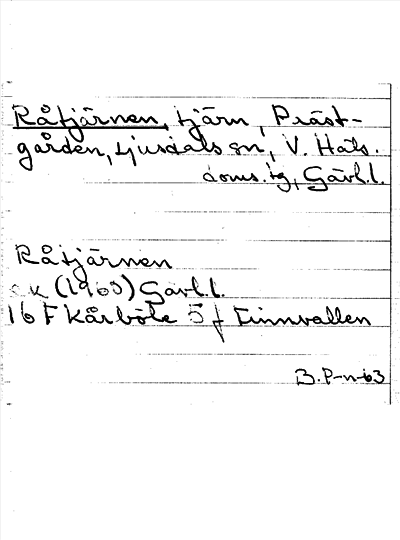 Råtjärnen, tjärn, Präst-
gården, Ljusdals sn, V. Häls.
doms. tg, Gävl.l.
Råtjärnen
EK (1963) Gävl.l.
16 F Kårböle 5 f Finnvallen
B.P-n-63